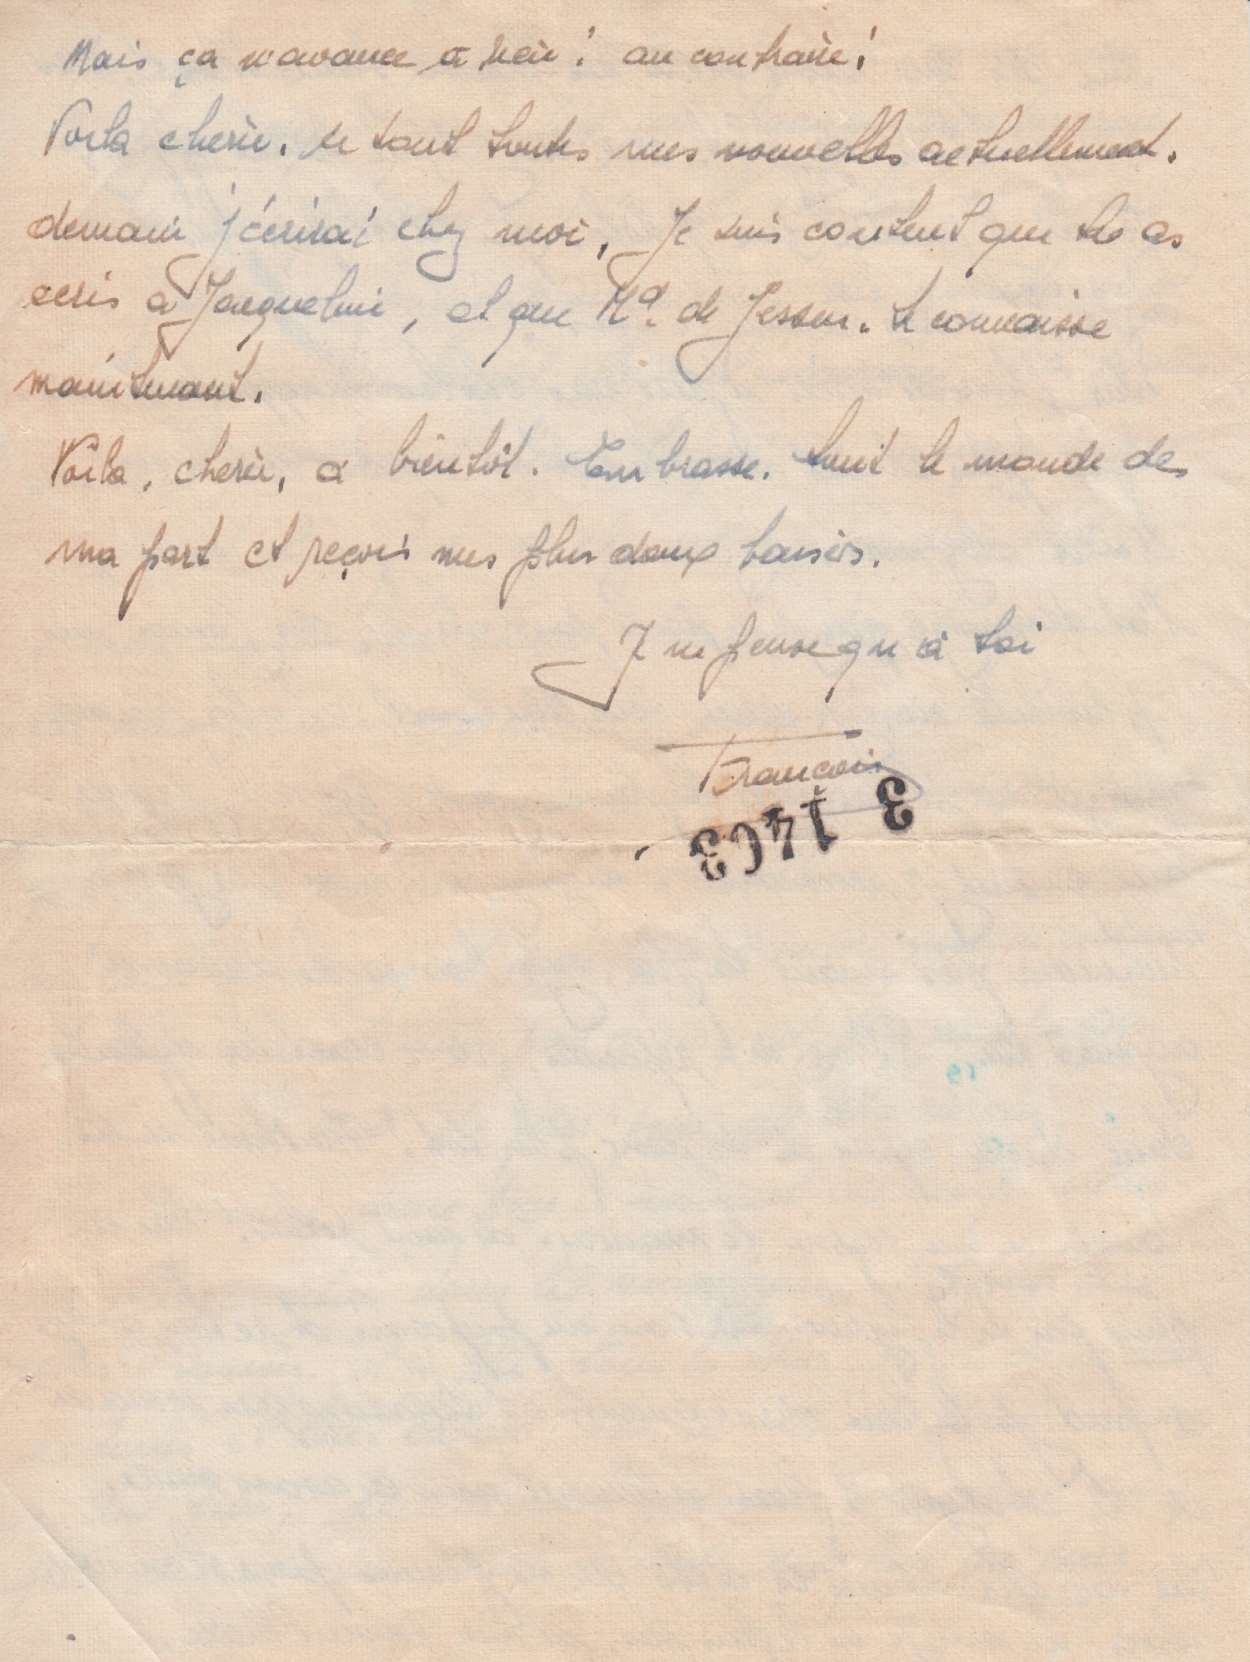 Mais ça n'avance à rien! au contraire!
Voila cherie. ce sont toutes mes nouvelles actuellement.
demain j'écrirai chez moi, Je suis content que tu as
ecris à Jacqueline, et que M^d. de Jessen. te connaisse
maintenant.
Voila, cherie, a bientôt. Embrasse. tout le monde de
ma part et reçois mes plus doux baisers.
J ne pense qu'à toi
François
3 1403